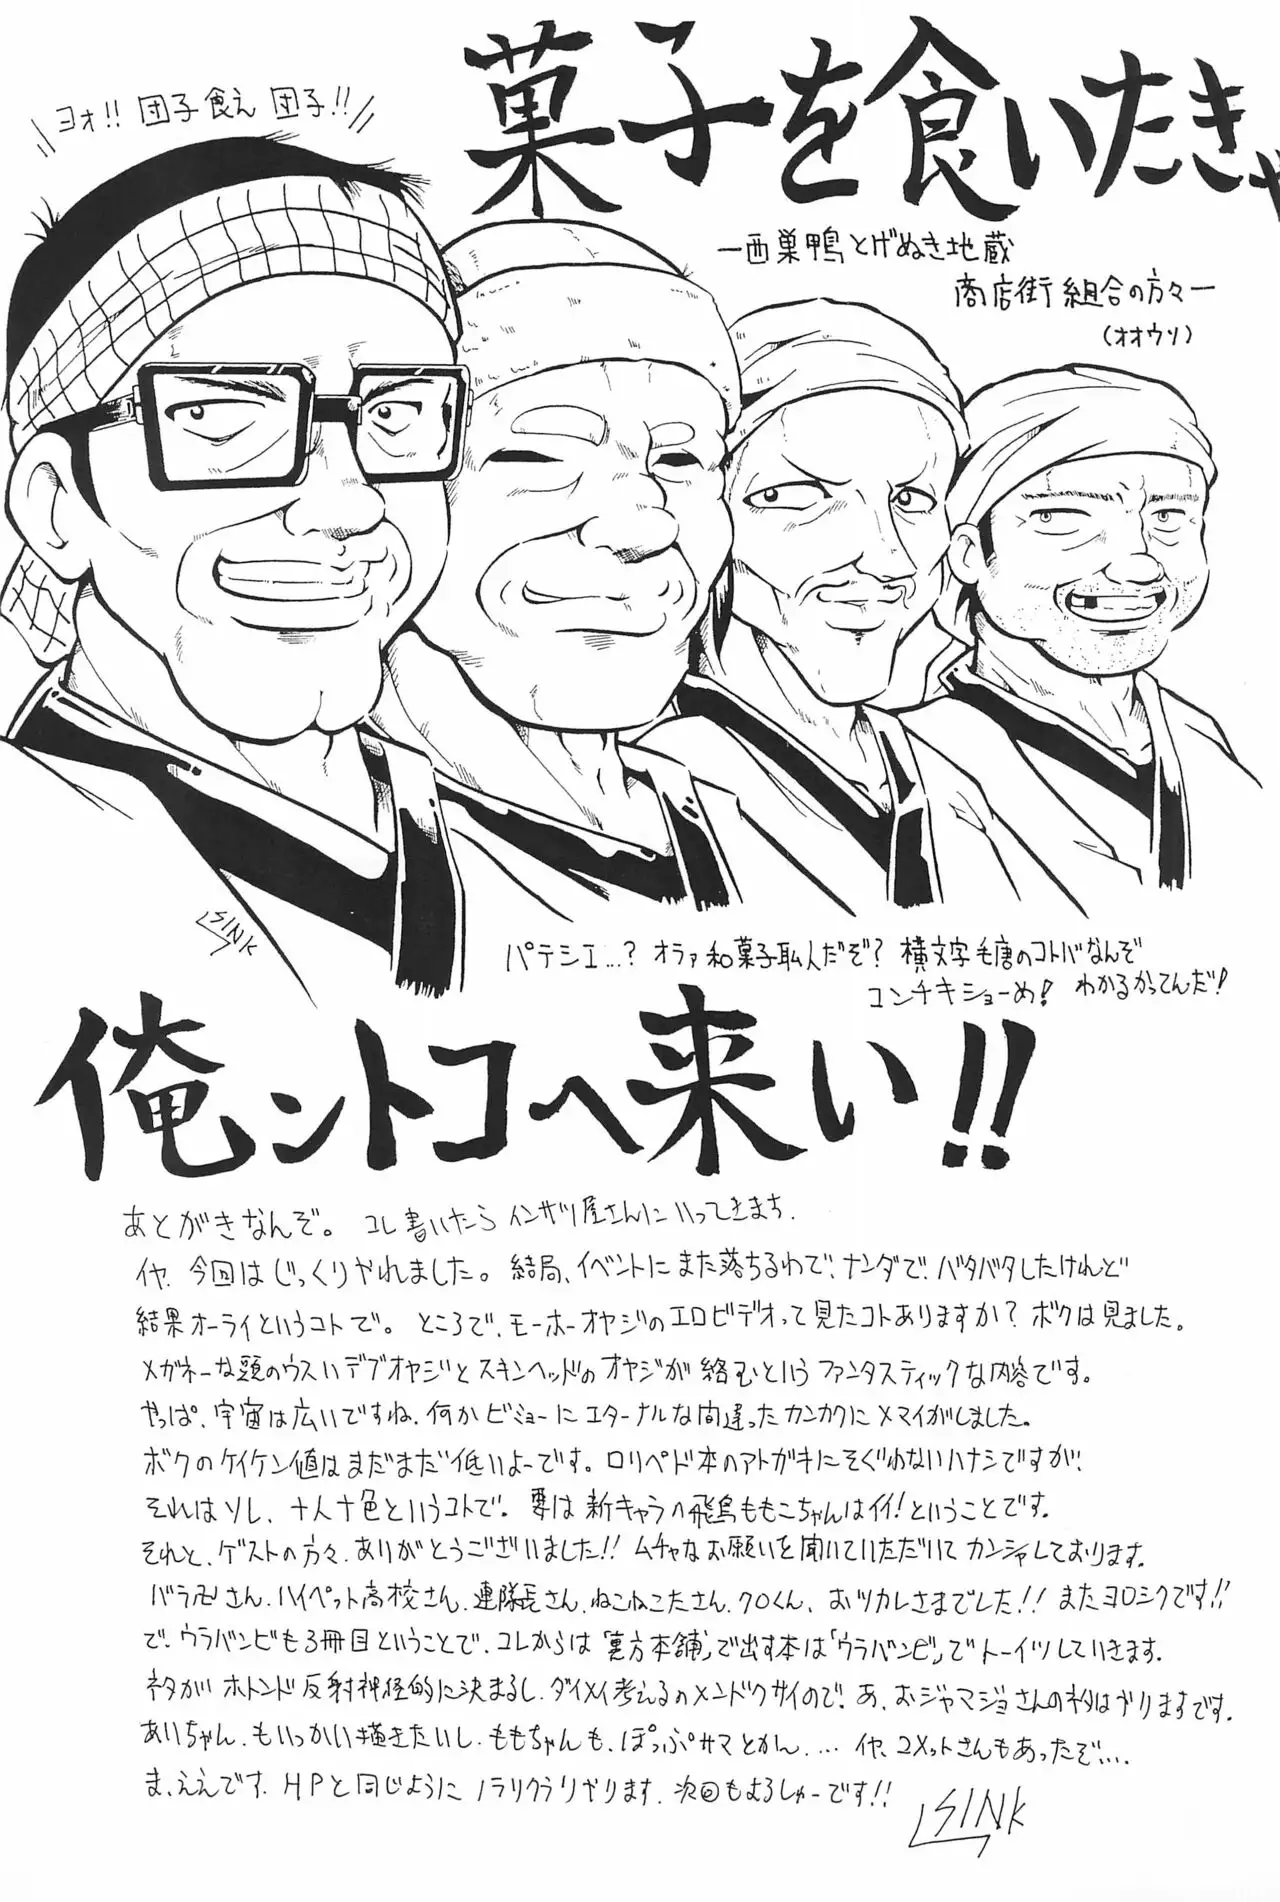 ヨォ!! 団子食え 団子!!
菓子を食いたきゃ
ー西巣鴨とげぬき地蔵
商店街組合の方々ー
(オオウソ)
SINK
パテシエ…? オラァ和菓子職人だぞ? 横文字毛唐のコトバなんぞ
コンチキショーめ! わかるかってんだ!
俺ントコへ来い!!
あとがきなんぞ。 コレ書いたらインサツ屋さんにいってきまち.
イヤ、今回はじっくりやれました。結局、イベントにまた落ちるわで、ナンダで、バタバタしたけれど
結果オーライというコトで。ところで、モーホーオヤジのエロビデオって見たコトありますか? ボクは見ました。
メガネーな頭のウスいデブオヤジとスキンヘッドのオヤジが絡むというファンタスティックな内容です。
やっぱ、宇宙は広いですね、何かビミョーにエターナルな間違ったカンカクにメマイがしました。
ボクのケイケン値はまだまだ低いよーです。ロリペド本のアトガキにそぐわないハナシですが、
それはソレ、十人十色というコトで。要は新キャラの飛鳥ももこちゃんはイイ! ということです。
それと、ゲストの方々、ありがとうございました!! ムチャなお願いを聞いていただいてカンシャしております。
さん、ハイペット高校さん、連隊長さん、ねこねこたさん、クロくん、おツカレさまでした!! またヨロシクです!!
で、ウラバンビも3冊目ということで、コレからは「裏方本舗」で出す本は「ウラバンビ」でトーイツしていきます。
ネタがホトンド反射神経的に決まるし、ダイメイ考えるのメンドクサイので。あ、おジャマジョさんのネタはアリますです。
あいちゃん、もいっかい描きたいし、ももちゃんも、ぽっぷサマとかん、… イヤ、ユメットさんもあったぞ…
ま、ええです。HPと同じようにノラリクラリやります。次回もよろしゅーです!!
SINK